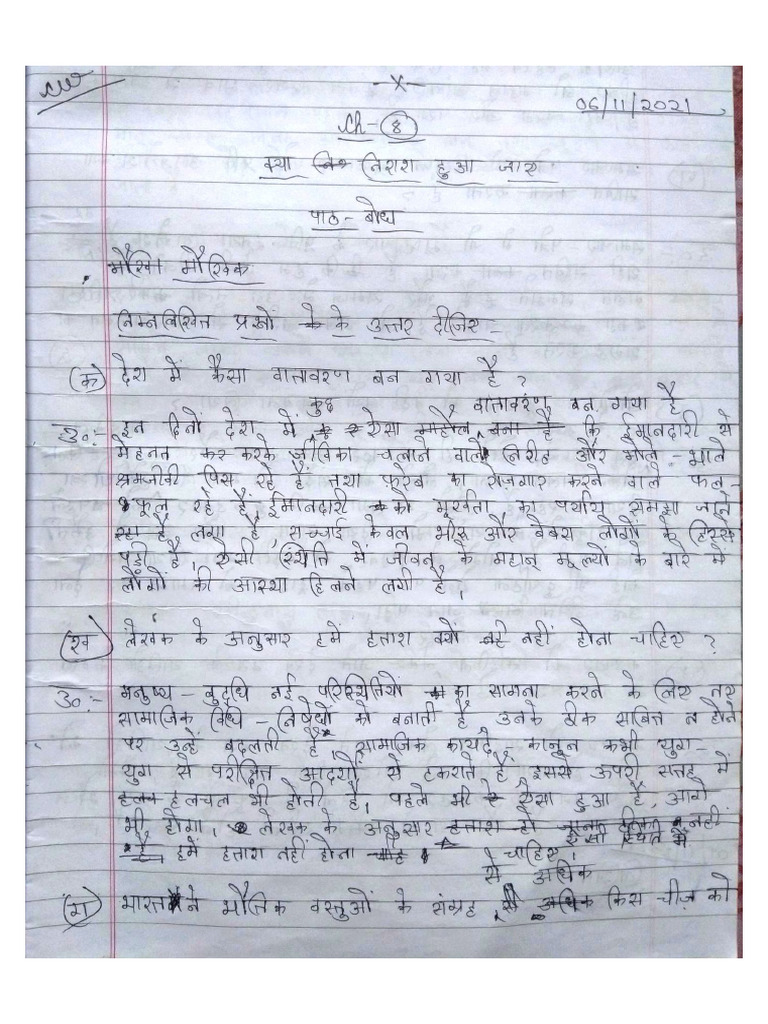 CW
-x-
06/11/2021
Ch-8
क्या निराश हुआ जाए
पाठ-बोध
मौखिक
निम्नलिखित प्रश्नों के उत्तर दीजिए-
(क) देश में कैसा वातावरण बन गया है?
उ०:- इन दिनों देश में कुछ ऐसा वातावरण बन गया है कि ईमानदारी से
मेहनत कर करके जीविका चलाने वाले निरीह और भोले-भाले
श्रमजीवी पिस रहे हैं तथा फरेब का रोज़गार करने वाले फल-
फूल रहे हैं, ईमानदारी को मूर्खता का पर्याय समझा जाने
लगा है, सच्चाई केवल भीरू और बेबस लोगों के हिस्से
पड़ी है, ऐसी स्थिति में जीवन के महान मूल्यों के बारे में
लोगों की आस्था हिलने लगी है।
(ख) लेखक के अनुसार हमें हताश क्यों नहीं होना चाहिए?
उ०:- मनुष्य-बुद्धि नई परिस्थितियों का सामना करने के लिए नए
सामाजिक विधि-निषेधों को बनाती है उनके ठीक साबित न होने
पर उन्हें बदलती है, सामाजिक कायदे-कानून कभी युग-
युग से परीक्षित आदर्शों से टकराते हैं इससे ऊपरी सतह में
हलचल भी होती है, पहले भी ऐसा हुआ है, आगे
भी होगा, लेखक के अनुसार ऐसी स्थिति में
हमें हताश नहीं होना चाहिए।
(ग) भारत ने भौतिक वस्तुओं के संग्रह से अधिक किस चीज़ को